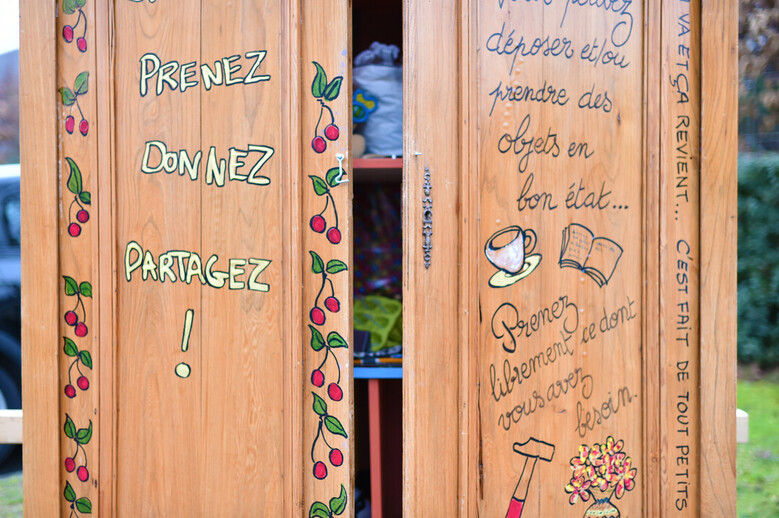 PRENEZ
DONNEZ
PARTAGEZ
!
Vous pouvez
déposer et/ou
prendre des
objets en
bon état...
Prenez
librement ce dont
vous avez
besoin.
VA ET ÇA REVIENT... C'EST FAIT DE TOUT PETITS